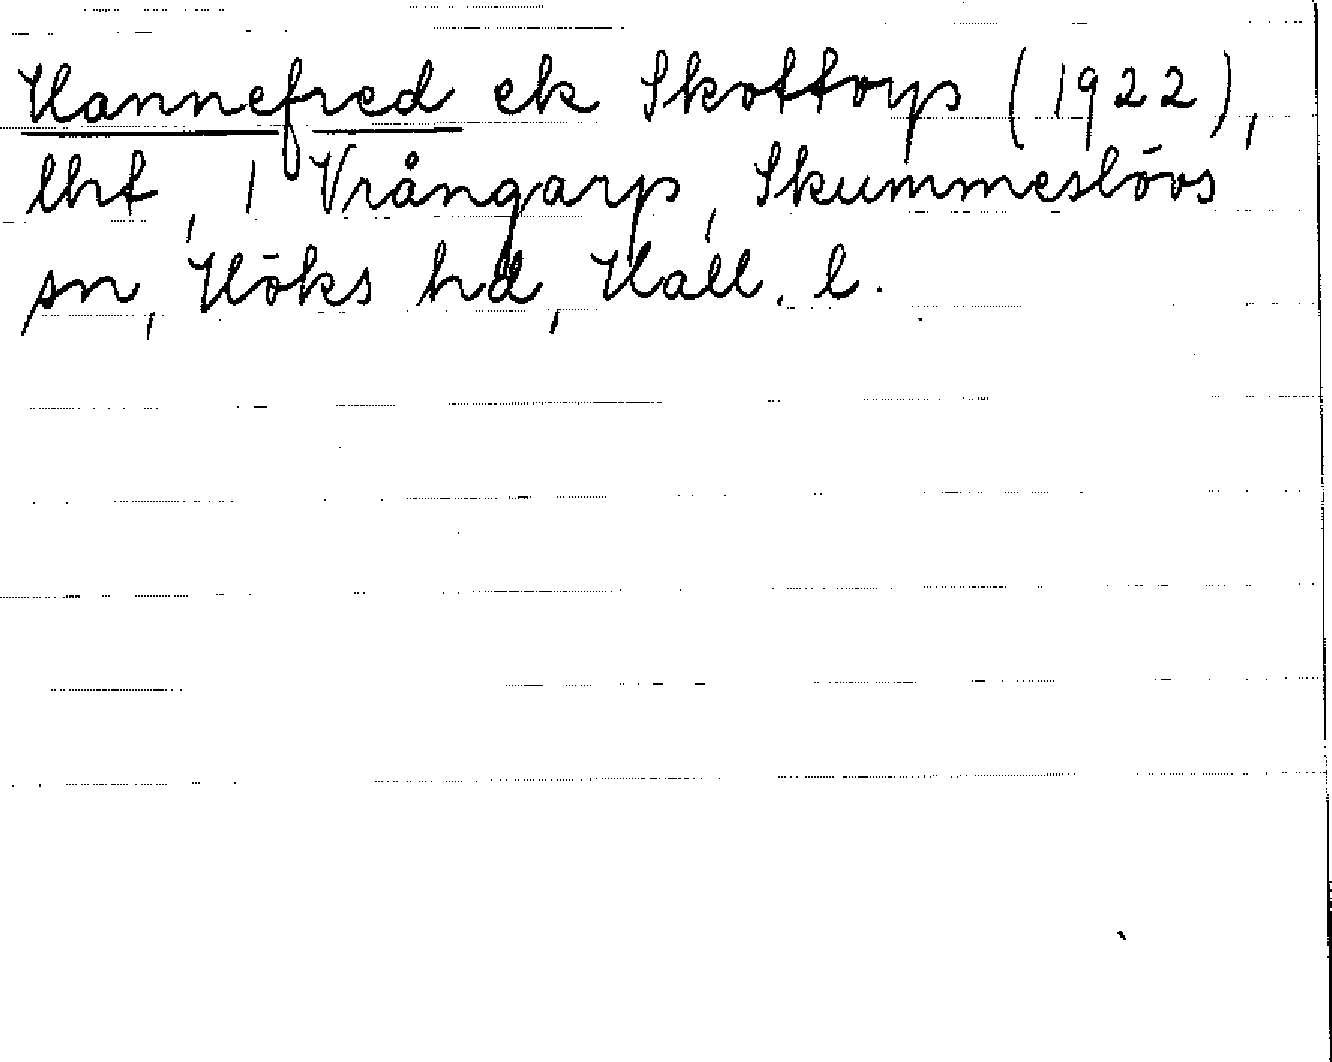 Hannefred ek Skottorp (1922),
lht, 1 Vrångarp, Skummeslövs
sn, Höks hd, Hall. l.